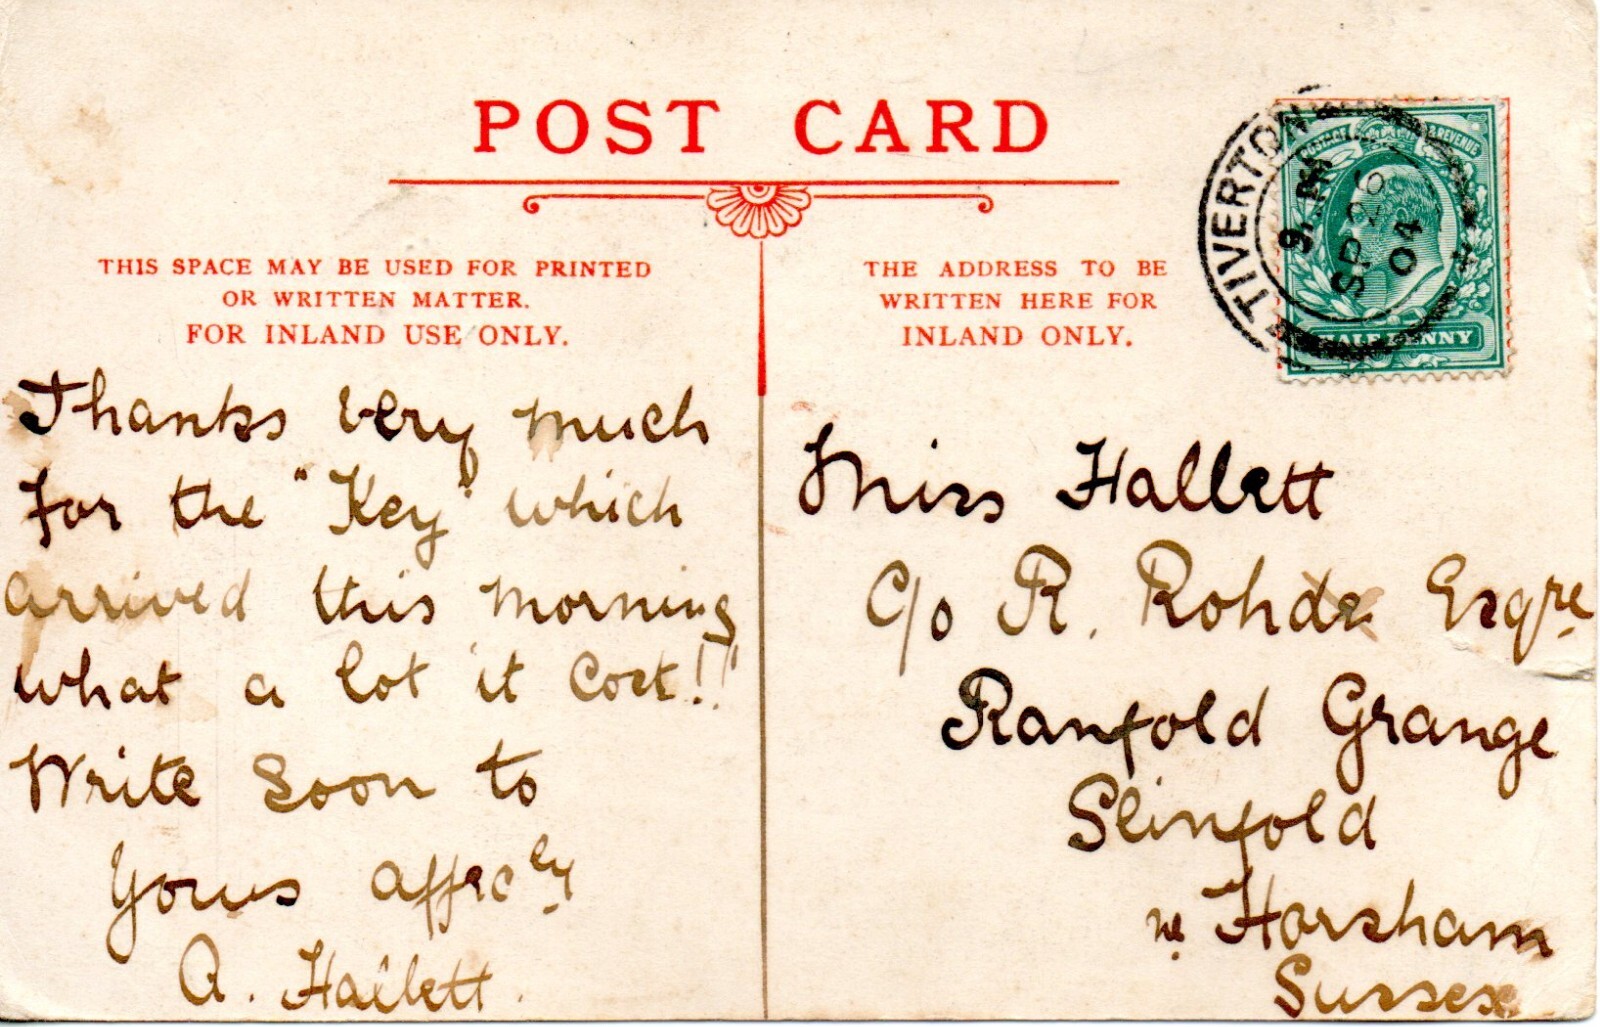 POST CARD
THIS SPACE MAY BE USED FOR PRINTED
OR WRITTEN MATTER.
FOR INLAND USE ONLY.
Thanks very much
for the "Key" which
arrived this morning
what a lot it cost!!"
Write soon to
Yours affecly
A. Hallett.
THE ADDRESS TO BE
WRITTEN HERE FOR
INLAND ONLY.
TIVERTON
9. PM
SP 26
04
POSTAGE & REVENUE
HALF PENNY
Miss Hallett
C/o R. Rohde Esqre
Ranfold Grange
Slinfold
nr Horsham
Sussex